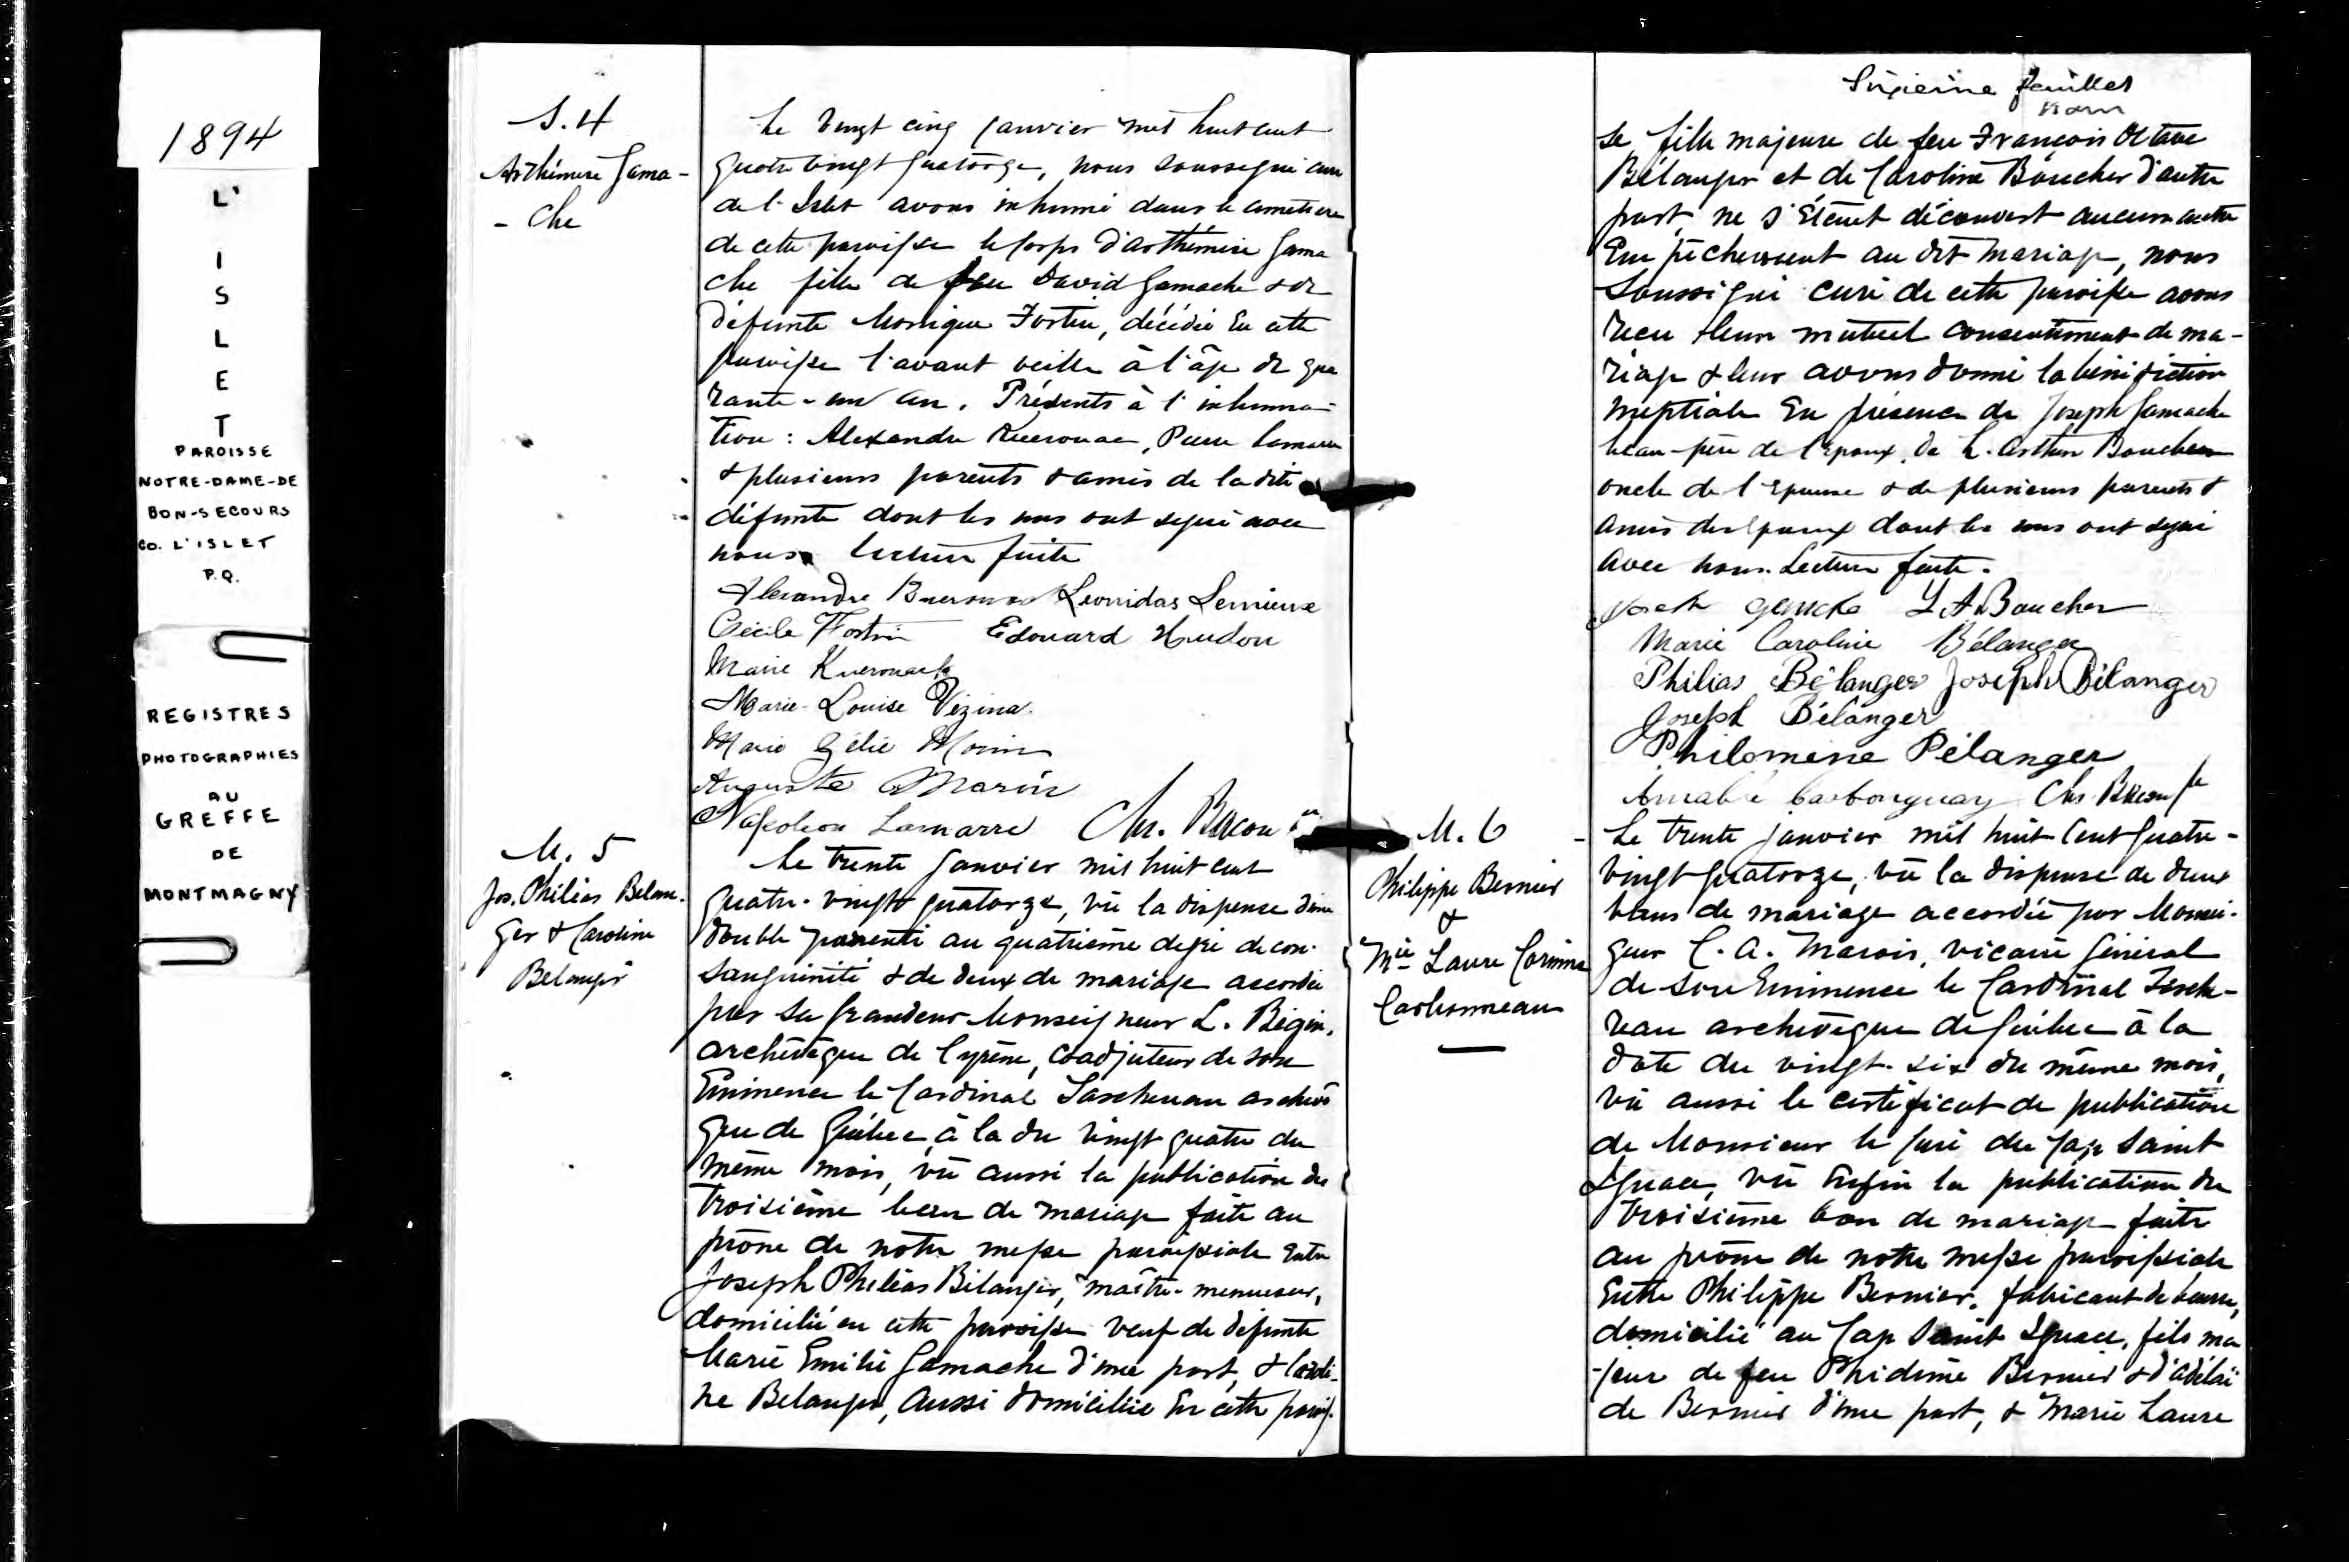 1894
L'
I
S
L
E
T
PAROISSE
NOTRE-DAME-DE
BON-SECOURS
CO. L'ISLET
P.Q.
REGISTRES
PHOTOGRAPHIES
AU
GREFFE
DE
MONTMAGNY
S. 4
Arthémise Gama-
- che
Le vingt cinq janvier mil huit cent
quatre vingt quatorze, nous soussigné curé
de l'Islet avons inhumé dans le cimetière
de cette paroisse le corps d'arthémise Gama
che fille de feu David Gamache & de
défunte Monique Fortin, décédée en cette
paroisse l'avant veille à l'âge de qua
rante-un an. Présents à l'inhuma-
tion : Alexandre Kuerouac, Pierre Lamarre
& plusieurs parents & amis de la dite
défunte dont les uns ont signé avec
nous. Lecture faite
Alexandre Leonidas Lemieux
Cécile Fortin Edouard Hudon
Marie Kuerouack
Marie-Louise Vézina
Marie Zélie Morin
Auguste Marin
Napoléon Lamarre Chs. Bacon Ptre
M. 5
Jos. Philéas Belan-
ger & Caroline
Belanger
Le trente janvier mil huit cent
quatre-vingt quatorze, vû la dispense d'une
double parenté au quatrième degré de con-
sanguinité & de deux de mariage accordée
par Sa Grandeur Monseigneur L. Bégin,
archevêque de Cyrène, coadjuteur de son
Eminence le Cardinal Taschereau archevê
que de Québec à la du vingt quatre du
même mois, vû aussi la publication du
troisième ban de mariage faite au
prône de notre messe paroissiale entre
Joseph Philéas Bélanger, maître-menuisier,
domicilié en cette paroisse veuf de défunte
Marie Emilie Gamache d'une part, & Caroli-
ne Belanger, aussi domiciliée en cette parois-
Sixième feuillet
se, fille majeure de feu François Octave
Bélanger et de Caroline Boucher d'autre
part, ne s'étant découvert aucun autre
empêchement au dit mariage, nous
soussigné curé de cette paroisse avons
reçu leur mutuel consentement de ma-
riage & leur avons donné la bénédiction
nuptiale en présence de Joseph Gamache
beau-père de l'époux, de L. Arthur Boucher
oncle de l'épouse & de plusieurs parents &
amis des époux dont les uns ont signé
avec nous. Lecture faite.
L A Boucher
Marie Caroline Bélanger
Philias Bélanger Joseph Bélanger
Joseph Bélanger
Philomène Bélanger
Amable Charbonneau Chs. Bacon Ptre
M. 6
Philippe Bernier
&
Mie Laure Corinne
Carbonneau
Le trente janvier mil huit cent quatre-
vingt quatorze, vû la dispense de deux
bans de mariage accordée par Monsei-
gneur C. A. Marois, vicaire général
de son Eminence le Cardinal Tasche-
reau archevêque de Québec à la
date du vingt-six du même mois,
vû aussi le certificat de publication
de Monsieur le curé du Cap Saint
Ignace, vû enfin la publication du
troisième ban de mariage faite
au prône de notre messe paroissiale
entre Philippe Bernier, fabricant de beurre,
domicilié au Cap Saint Ignace, fils ma
-jeur de feu Phidime Bernier & d'Adélaï
de Bernier d'une part, & Marie Laure